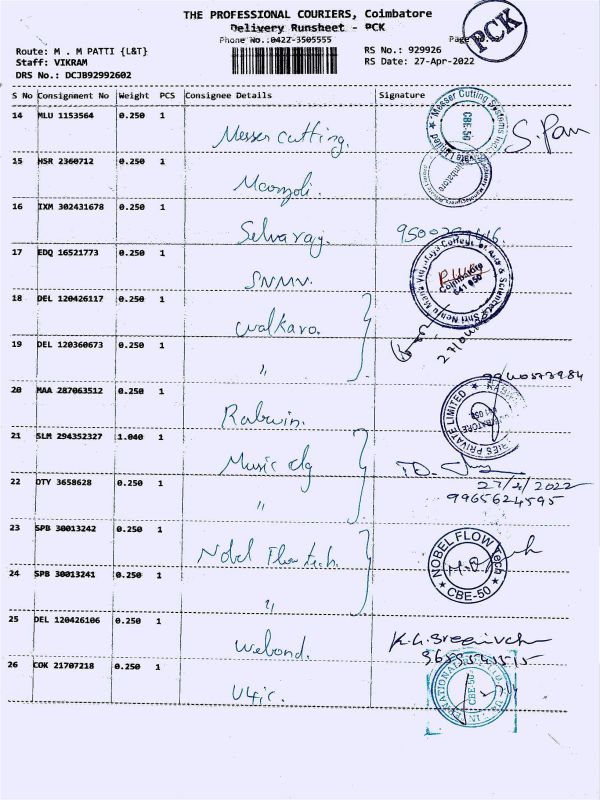 THE PROFESSIONAL COURIERS, Coimbatore
Delivery Runsheet - PCK
Phone No.:0422-3505555
PCK
Route: M . M PATTI {L&T}
RS No.: 929926
Staff: VIKRAM
RS Date: 27-Apr-2022
DRS No.: DCJB92992602
S No Consignment No Weight PCS Consignee Details Signature
14 MLU 1153564 0.250 1 Messer Cutting.
Messer Cutting Systems
CBE-50
S. Pan
15 HSR 2360712 0.250 1
Coimbatore
16 IXM 302431678 0.250 1 Selvaraj.
17 EDQ 16521773 0.250 1 SNMV.
Shri Nehru Maha Vidyalaya College of Arts & Science
Coimbatore
641 050
18 DEL 120426117 0.250 1 Walkaro.
19 DEL 120360673 0.250 1 "
20 MAA 287063512 0.250 1
PRIVATE LIMITED
21 SLM 294352327 1.040 1 Music dg
22 DTY 3658628 0.250 1 "
27/4/2022
9965624595
23 SPB 30013242 0.250 1 Nobel Flow tech.
NOBEL FLOW Tech
CBE-50
24 SPB 30013241 0.250 1 "
25 DEL 120426106 0.250 1 Webond.
26 COK 21707218 0.250 1
CBE-50